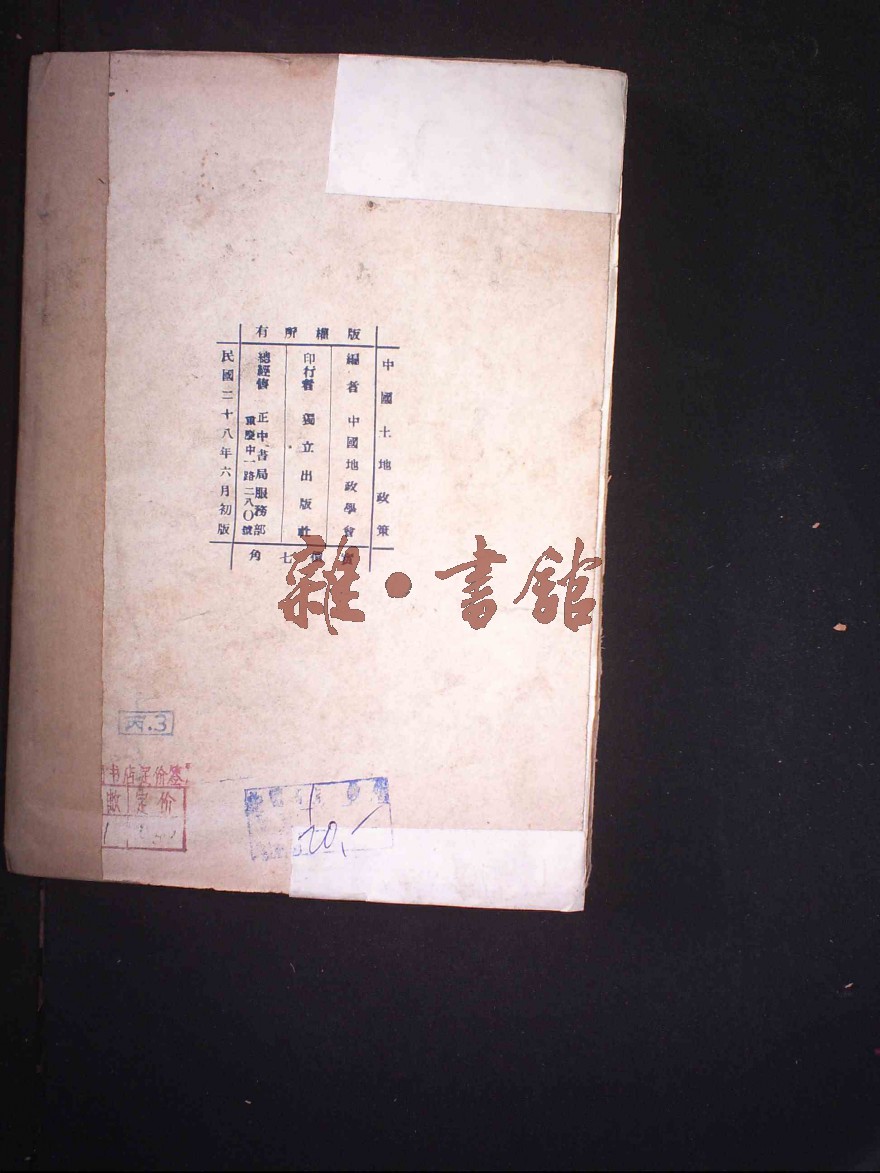 中國土地政策
版權所有
編者 中國地政學會
印行者 獨立出版社
總經售 正中書局服務部
重慶中一路二八〇號
實價七角
民國二十八年六月初版
雜·書館
丙.3
书店定价签
数 定价
20.